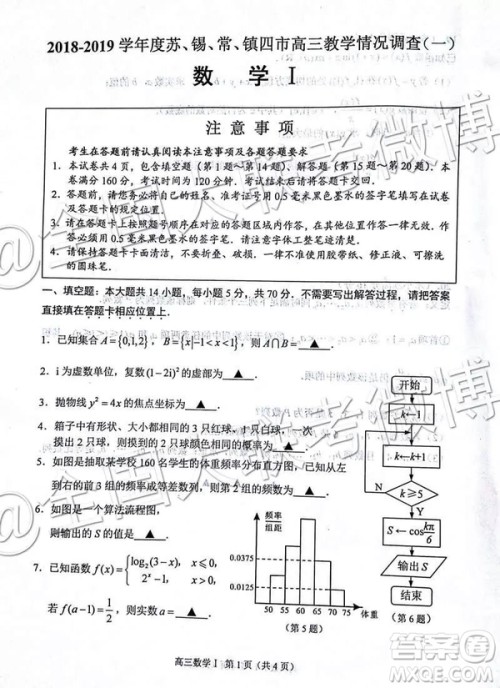 2018-2019 学年度苏、锡、常、镇四市高三教学情况调查(一)
数 学 Ⅰ
注 意 事 项
考生在答题前请认真阅读本注意事项及各题答题要求
1. 本试卷共4页,包含填空题(第1题~第14题)、解答题(第15题~第20题).本
卷满分160分,考试时间为120分钟.考试结束后,请将答题卡交回.
2. 答题前,请您务必将自己的姓名、准考证号用0.5毫米黑色墨水的签字笔填写在
答题卡的规定位置.
3. 请在答题卡上按照题号顺序在对应的答题区域内作答,在其他位置作答一律无效.作
答必须用0.5毫米黑色墨水的签字笔.请注意字体工整,笔迹清楚.
4. 请保持答题卡卡面清洁,不要折叠、破损.一律不准使用胶带纸、修正液、可擦洗
的圆珠笔.
一、填空题:本大题共14小题,每小题5分,共70分.不需要写出解答过程,请把答案
直接填在答题卡相应位置上.
1. 已知集合A={0,1,2},B={x|-1<x<1},则A∩B= ▲ .
2. i为虚数单位,复数(1-2i)²的虚部为 ▲ .
3. 抛物线y²=4x的焦点坐标为 ▲ .
4. 箱子中有形状、大小都相同的3只红球,1只白球,一次
摸出2只球,则摸到的2只球颜色相同的概率为 ▲ .
5. 如图是抽取某学校160名学生的体重频率分布直方图,已知从左
到右的前3组的频率成等差数列,则第2组的频数为 ▲ .
6. 如图是一个算法流程图,
则输出的S的值是 ▲ .
7. 已知函数f(x)={log₂(3-x), x≤0,
2ˣ-1, x>0,
若f(a-1)=1/2,则实数a= ▲ .
频率
组距
0.0375
0.0125
50 55 60 65 70 75 体重
(第5题)
开始
k←1
k←k+1
N
k≥5
Y
S←cos kπ/6
输出S
结束
(第6题)
高三数学Ⅰ 第1页(共4页)
@全国大联考微博
@全国大联考微博
作业帮